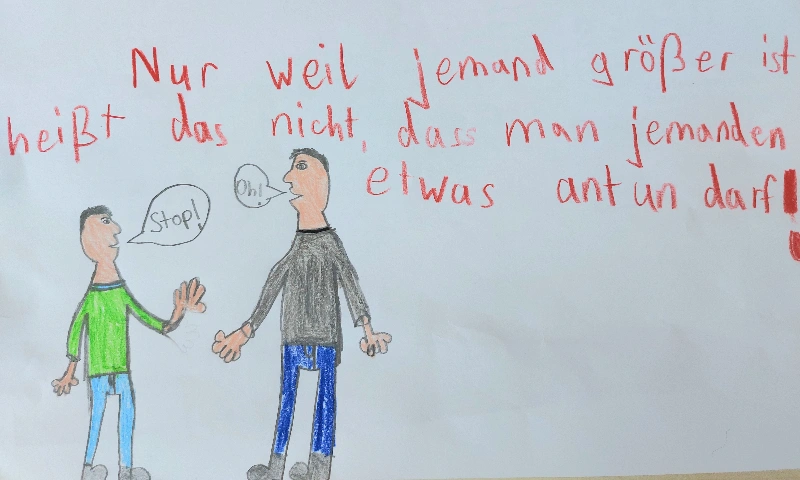 Nur weil jemand größer ist
heißt das nicht, dass man jemanden
etwas antun darf!
Stop!
Oh!